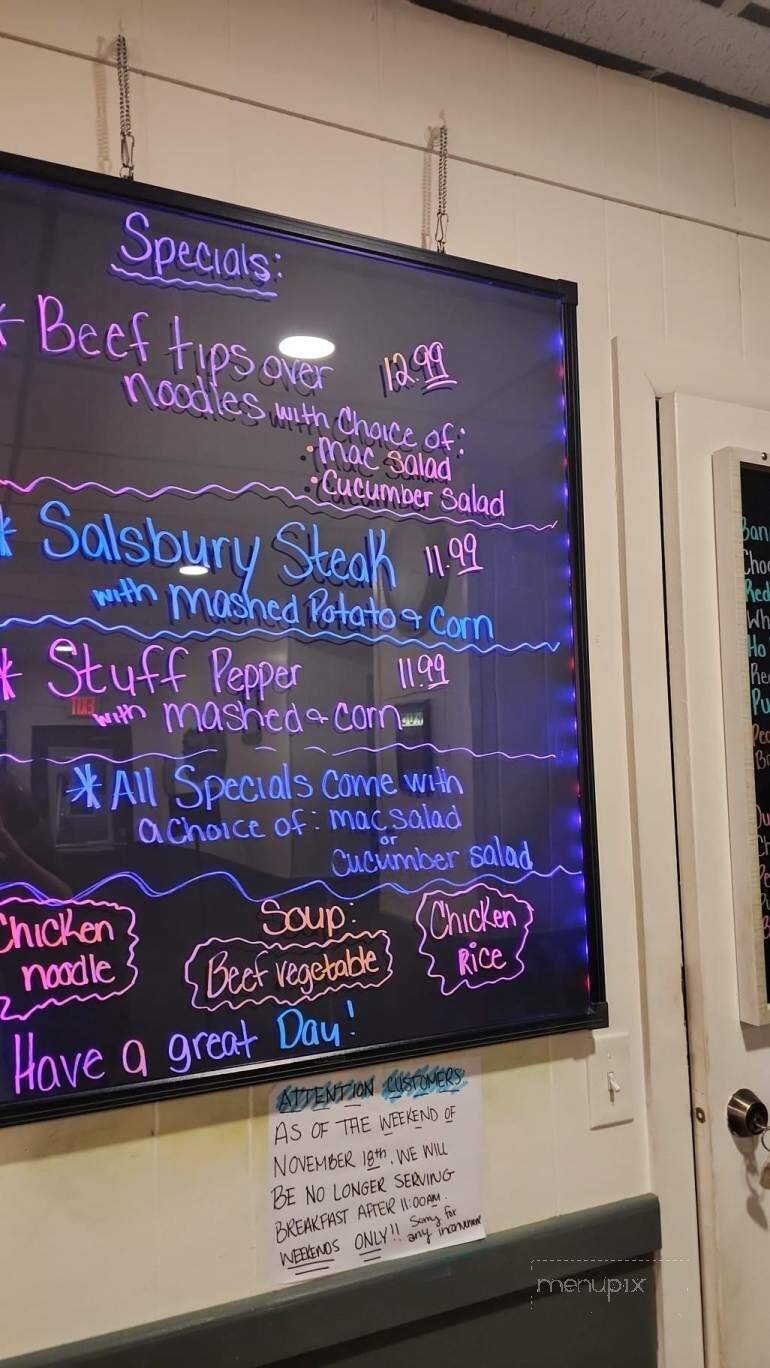 Specials:
* Beef tips over 12.99
noodles with choice of:
• mac salad
• Cucumber salad
* Salsbury Steak 11.99
with mashed Potato & Corn
* Stuff Pepper 11.99
with mashed & corn
* All Specials come with
a choice of: mac salad
or
cucumber salad
Soup:
Chicken
noodle
Beef vegetable
Chicken
Rice
Have a great Day!
ATTENTION CUSTOMERS
AS OF THE WEEKEND OF
NOVEMBER 18th. WE WILL
BE NO LONGER SERVING
BREAKFAST AFTER 11:00AM.
WEEKENDS ONLY!! Sorry for
any inconvenience
menupix